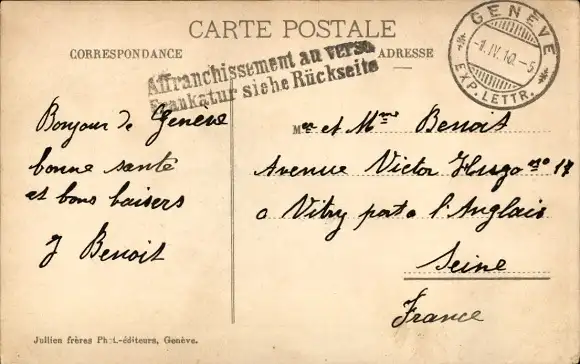 CARTE POSTALE
CORRESPONDANCE
ADRESSE
Affranchissement au verso
Frankatur siehe Rückseite
GENÈVE
-1.IV.10.-5
EXP. LETTR.
Bonjour de Geneve
bonne santé
et bons baisers
J Benoit
Mr et Mme Benoit
Avenue Victor Hugo no 17
a Vitry port a l'Anglais
Seine
France
Jullien frères Phot.-éditeurs, Genève.